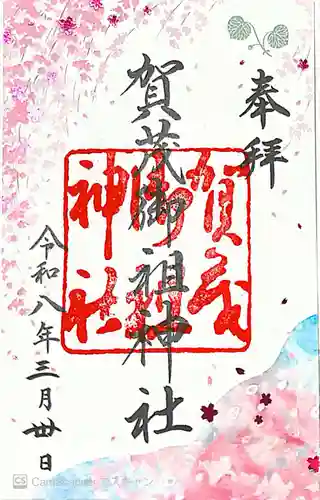 奉拝
賀茂御祖神社
賀茂
御祖
神社
令和八年三月卅日
CS CamScanner でスキャン